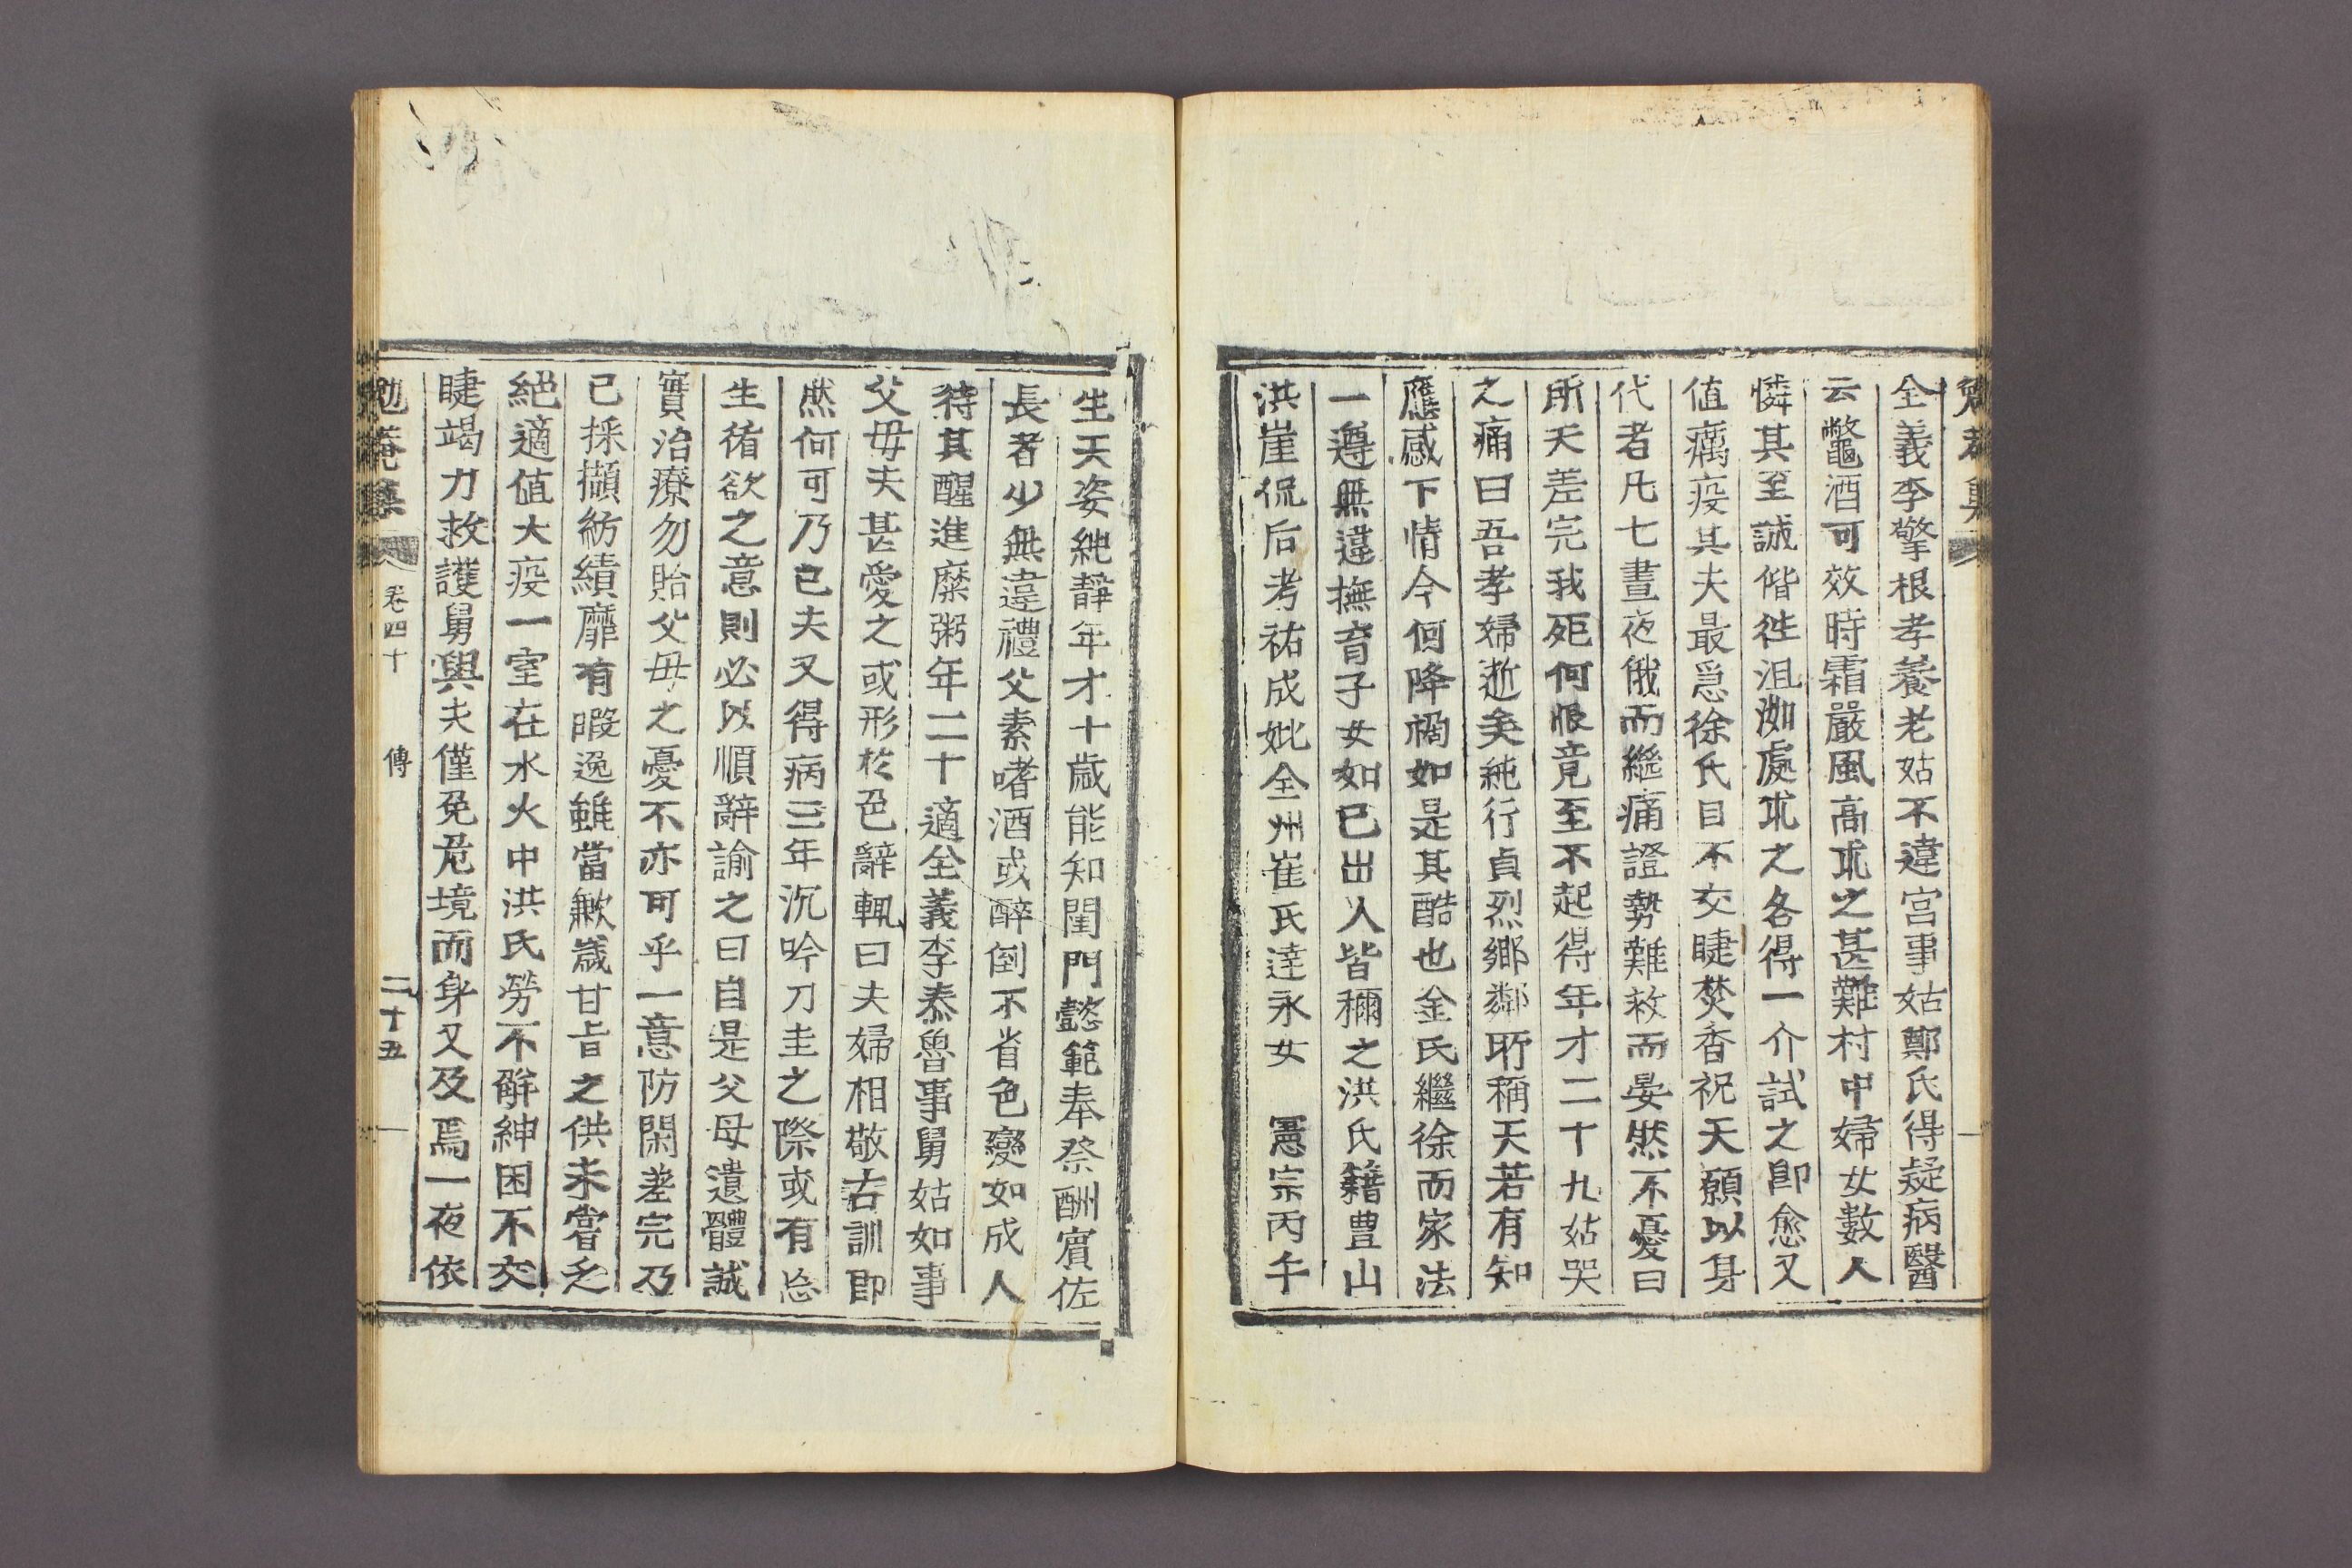 全義李擎根孝養老姑不違宮事姑鄭氏得疑病醫
云鼈酒可效時霜嚴風高求之甚難村中婦女數人
憐其至誠偕徃沮洳處求之各得一介試之卽愈又
値癘疫其夫最急徐氏目不交睫焚香祝天願以身
代者凡七晝夜俄而繼痛證勢難救而晏然不憂曰
所天差完我死何恨竟至不起得年才二十九姑哭
之痛曰吾孝婦逝矣純行貞烈鄉鄰所稱天若有知
應感下情今何降禍如是其酷也金氏繼徐而家法
一遵無違撫育子女如已出人皆稱之洪氏籍豊山
洪崖侃后考祐成妣全州崔氏達永女　憲宗丙午
生天姿純靜年才十歲能知閨門懿範奉祭酬賓佐
長者少無違禮父素嗜酒或醉倒不省色變如成人
待其醒進糜粥年二十適全義李泰魯事舅姑如事
父母夫甚愛之或形於色辭輒曰夫婦相敬古訓卽
然何可乃已夫又得病三年沉吟刀圭之際或有忘
生徇欲之意則必以順辭諭之曰自是父母遺體誠
實治療勿貽父母之憂不亦可乎一意防閑差完乃
已採擷紡績靡有暇逸雖當歉歲甘旨之供未嘗乏
絕適値大疫一室在水火中洪氏勞不解紳困不交
睫竭力救護舅與夫僅免危境而身又及焉一夜依
勉菴集　卷四十　傳　二十五